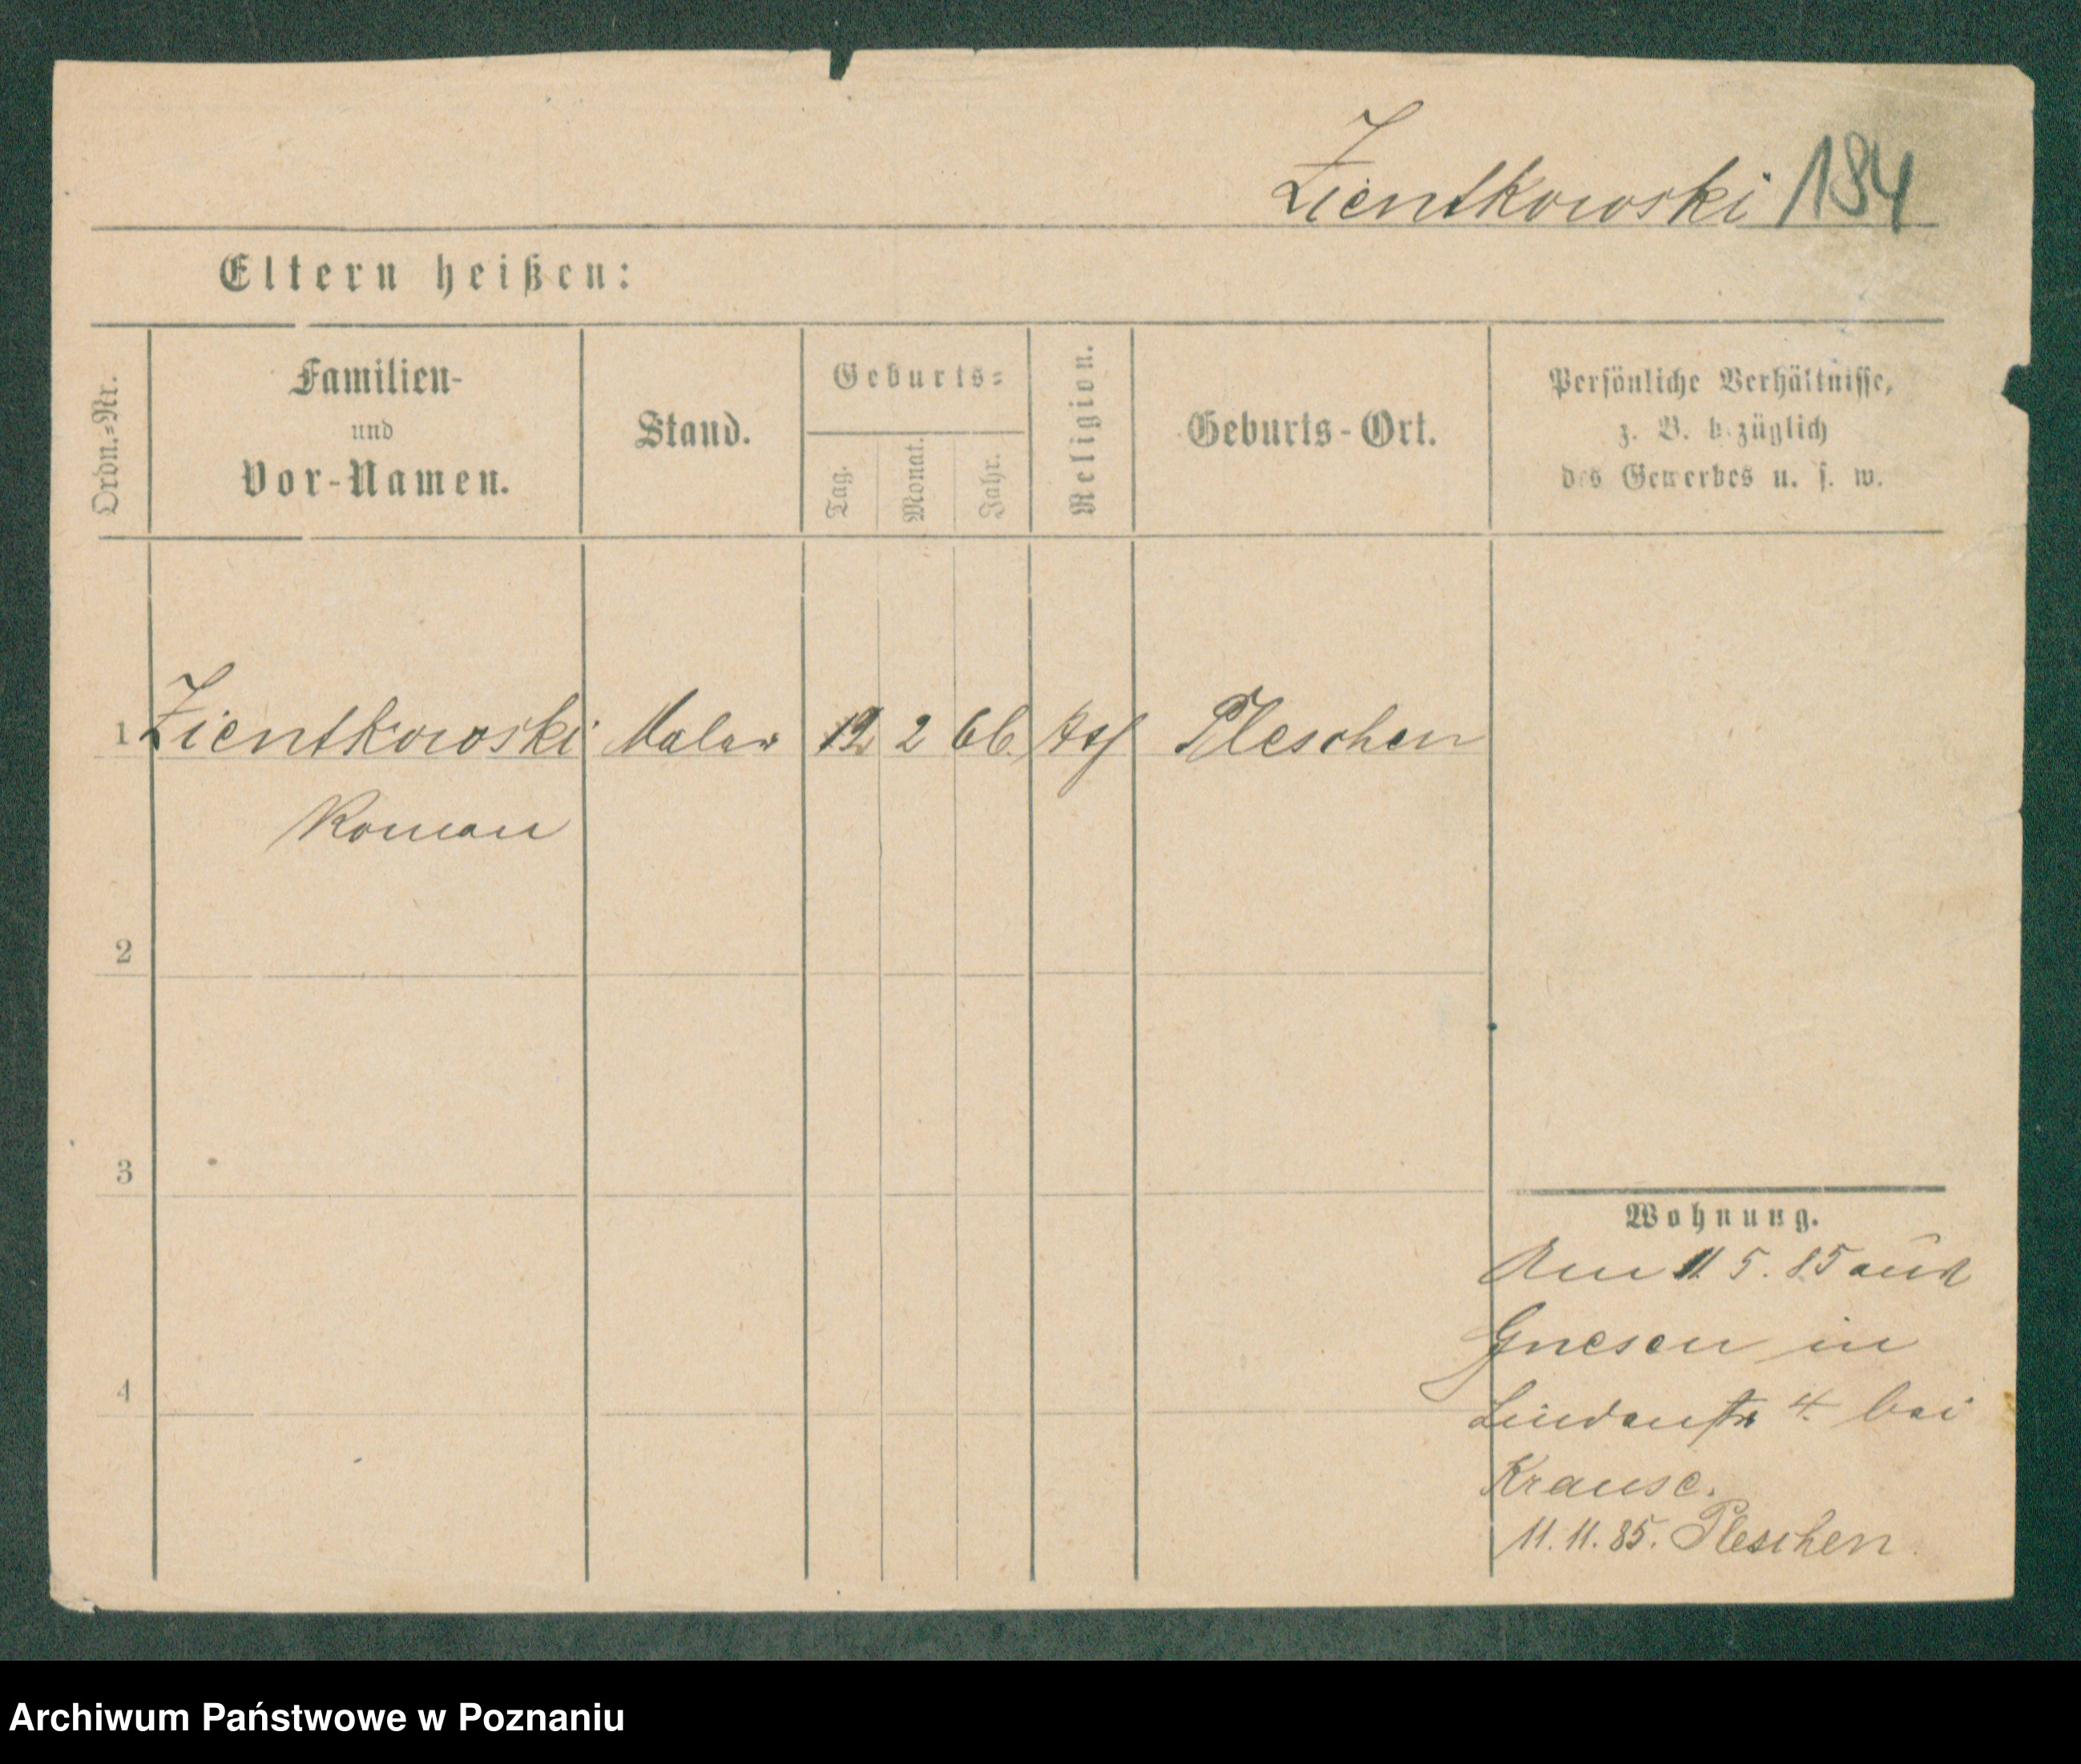 Zientkowski 184
Eltern heißen:
Ordn.-Nr.
Familien-
und
Vor-Namen.
Stand.
Geburts-
Tag.
Monat.
Jahr.
Religion.
Geburts-Ort.
Persönliche Verhältnisse,
z. B. bezüglich
des Gewerbes u. s. w.
1 Zientkowski Maler 12 2 66. Pleschen
Roman
2
3
4
Wohnung.
Am 11 5. 85 aus
Gnesen in
Lindenstr 4. bei
Krause.
11. 11. 85. Pleschen
Archiwum Państwowe w Poznaniu